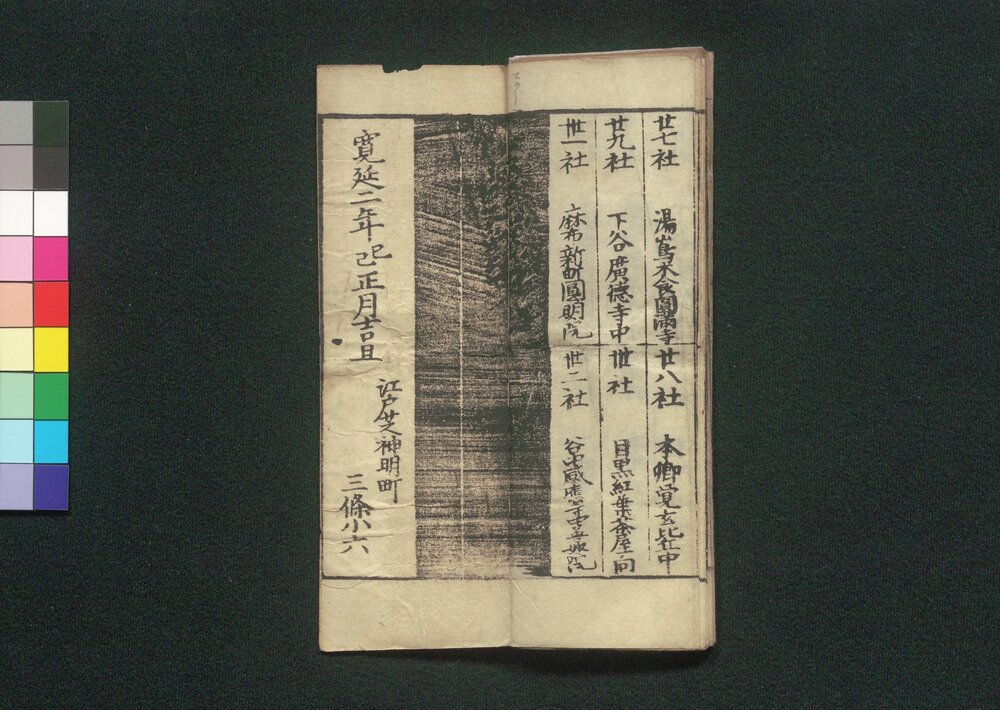 廿七社 湯嶌木食圓満寺
廿八社 本郷
廿九社 下谷廣徳寺中
丗社 目黒紅葉茶屋向
丗一社 麻布新町圓明院
丗二社 谷中感應寺中
寛延二年己巳正月吉旦
江戸芝神明町
三條小六